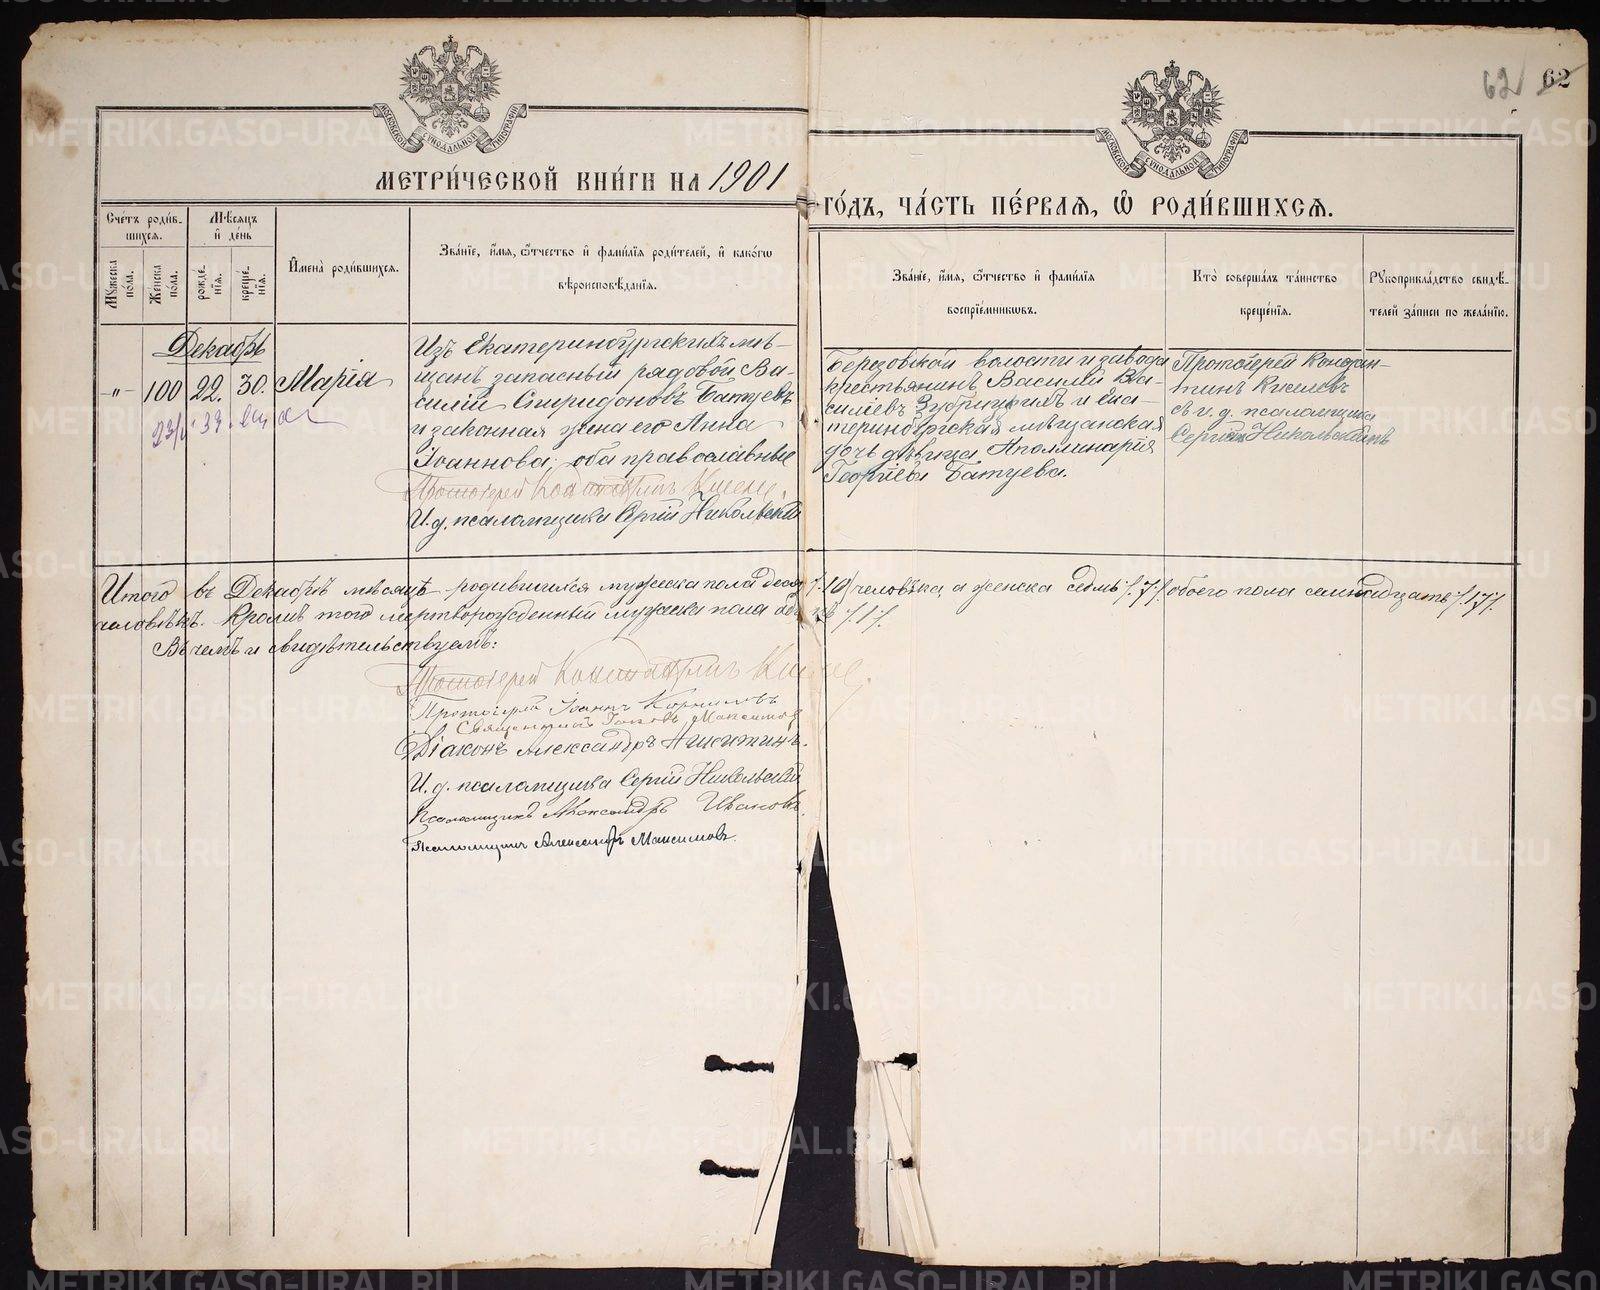 62 62
МОСКОВСКОЙ СѴНОДАЛЬНОЙ ТИПОГРАФІИ
МОСКОВСКОЙ СѴНОДАЛЬНОЙ ТИПОГРАФІИ
МЕТРИ́ЧЕСКОЙ КНИ́ГИ НА 1901 ГО́ДЪ, ЧА́СТЬ ПЕ́РВАЯ, Ѿ РОДИ́ВШИХСЯ.
Сче́тъ роди́в-
шихся.
Му́жеска по́ла.
Же́нска по́ла.
Мѣ́сяцъ
и҆ де́нь
рожде́-
нїя.
креще́-
нїя.
И҆мена̀ роди́вшихся.
Зва́нїе, и҆́мя, ѻ҆́тчество и҆ фами́лїя роди́телей, и҆ како́гѡ
вѣроисповѣ́данїя.
Зва́нїе, и҆́мя, ѻ҆́тчество и҆ фами́лїя
воспрїе́мникѡвъ.
Кто̀ соверша́лъ та́инство
креще́нїя.
Рꙋкоприкла́дство свидѣ́-
телей за́писи по жела́нїю.
Декабрь
-„- 100 22. 30. Марія
Изъ Екатеринбургскихъ мѣ-
щанъ запасный рядовой Ва-
силій Спиридоновъ Батуевъ
и законная жена его Анна
Іоаннова; оба православные
Протоіерей Константинъ
И. д. псаломщика Сергій Никольскій
Березовской волости и завода
крестьянинъ Василій Ва-
силіевъ и Ека-
теринбургская мѣщанская
дочь дѣвица Аполлинарія
Георгіева Батуева.
Протоіерей Констан-
тинъ Киселевъ
съ и. д. псаломщика
Сергіемъ Никольскимъ
Итого въ Декабрѣ мѣсяцѣ родившихся мужеска пола десять /10/ человѣка, а женска седмь /.7/. обоего пола семнадцать /.17/.
человѣкъ. Кромѣ того мертворожденный мужеска пола /.1/.
Въ чемъ и свидѣтельствуемъ:
Протоіерей Константинъ
Протоіерей Іоаннъ Корниловъ
Священникъ Максимов
Діаконъ Александръ Никитинъ.
И. д. псаломщика Сергій Никольскій
Псаломщикъ Александръ Ивановъ.
Псаломщикъ Александръ Максимовъ.
METRIKI.GASO-URAL.RU